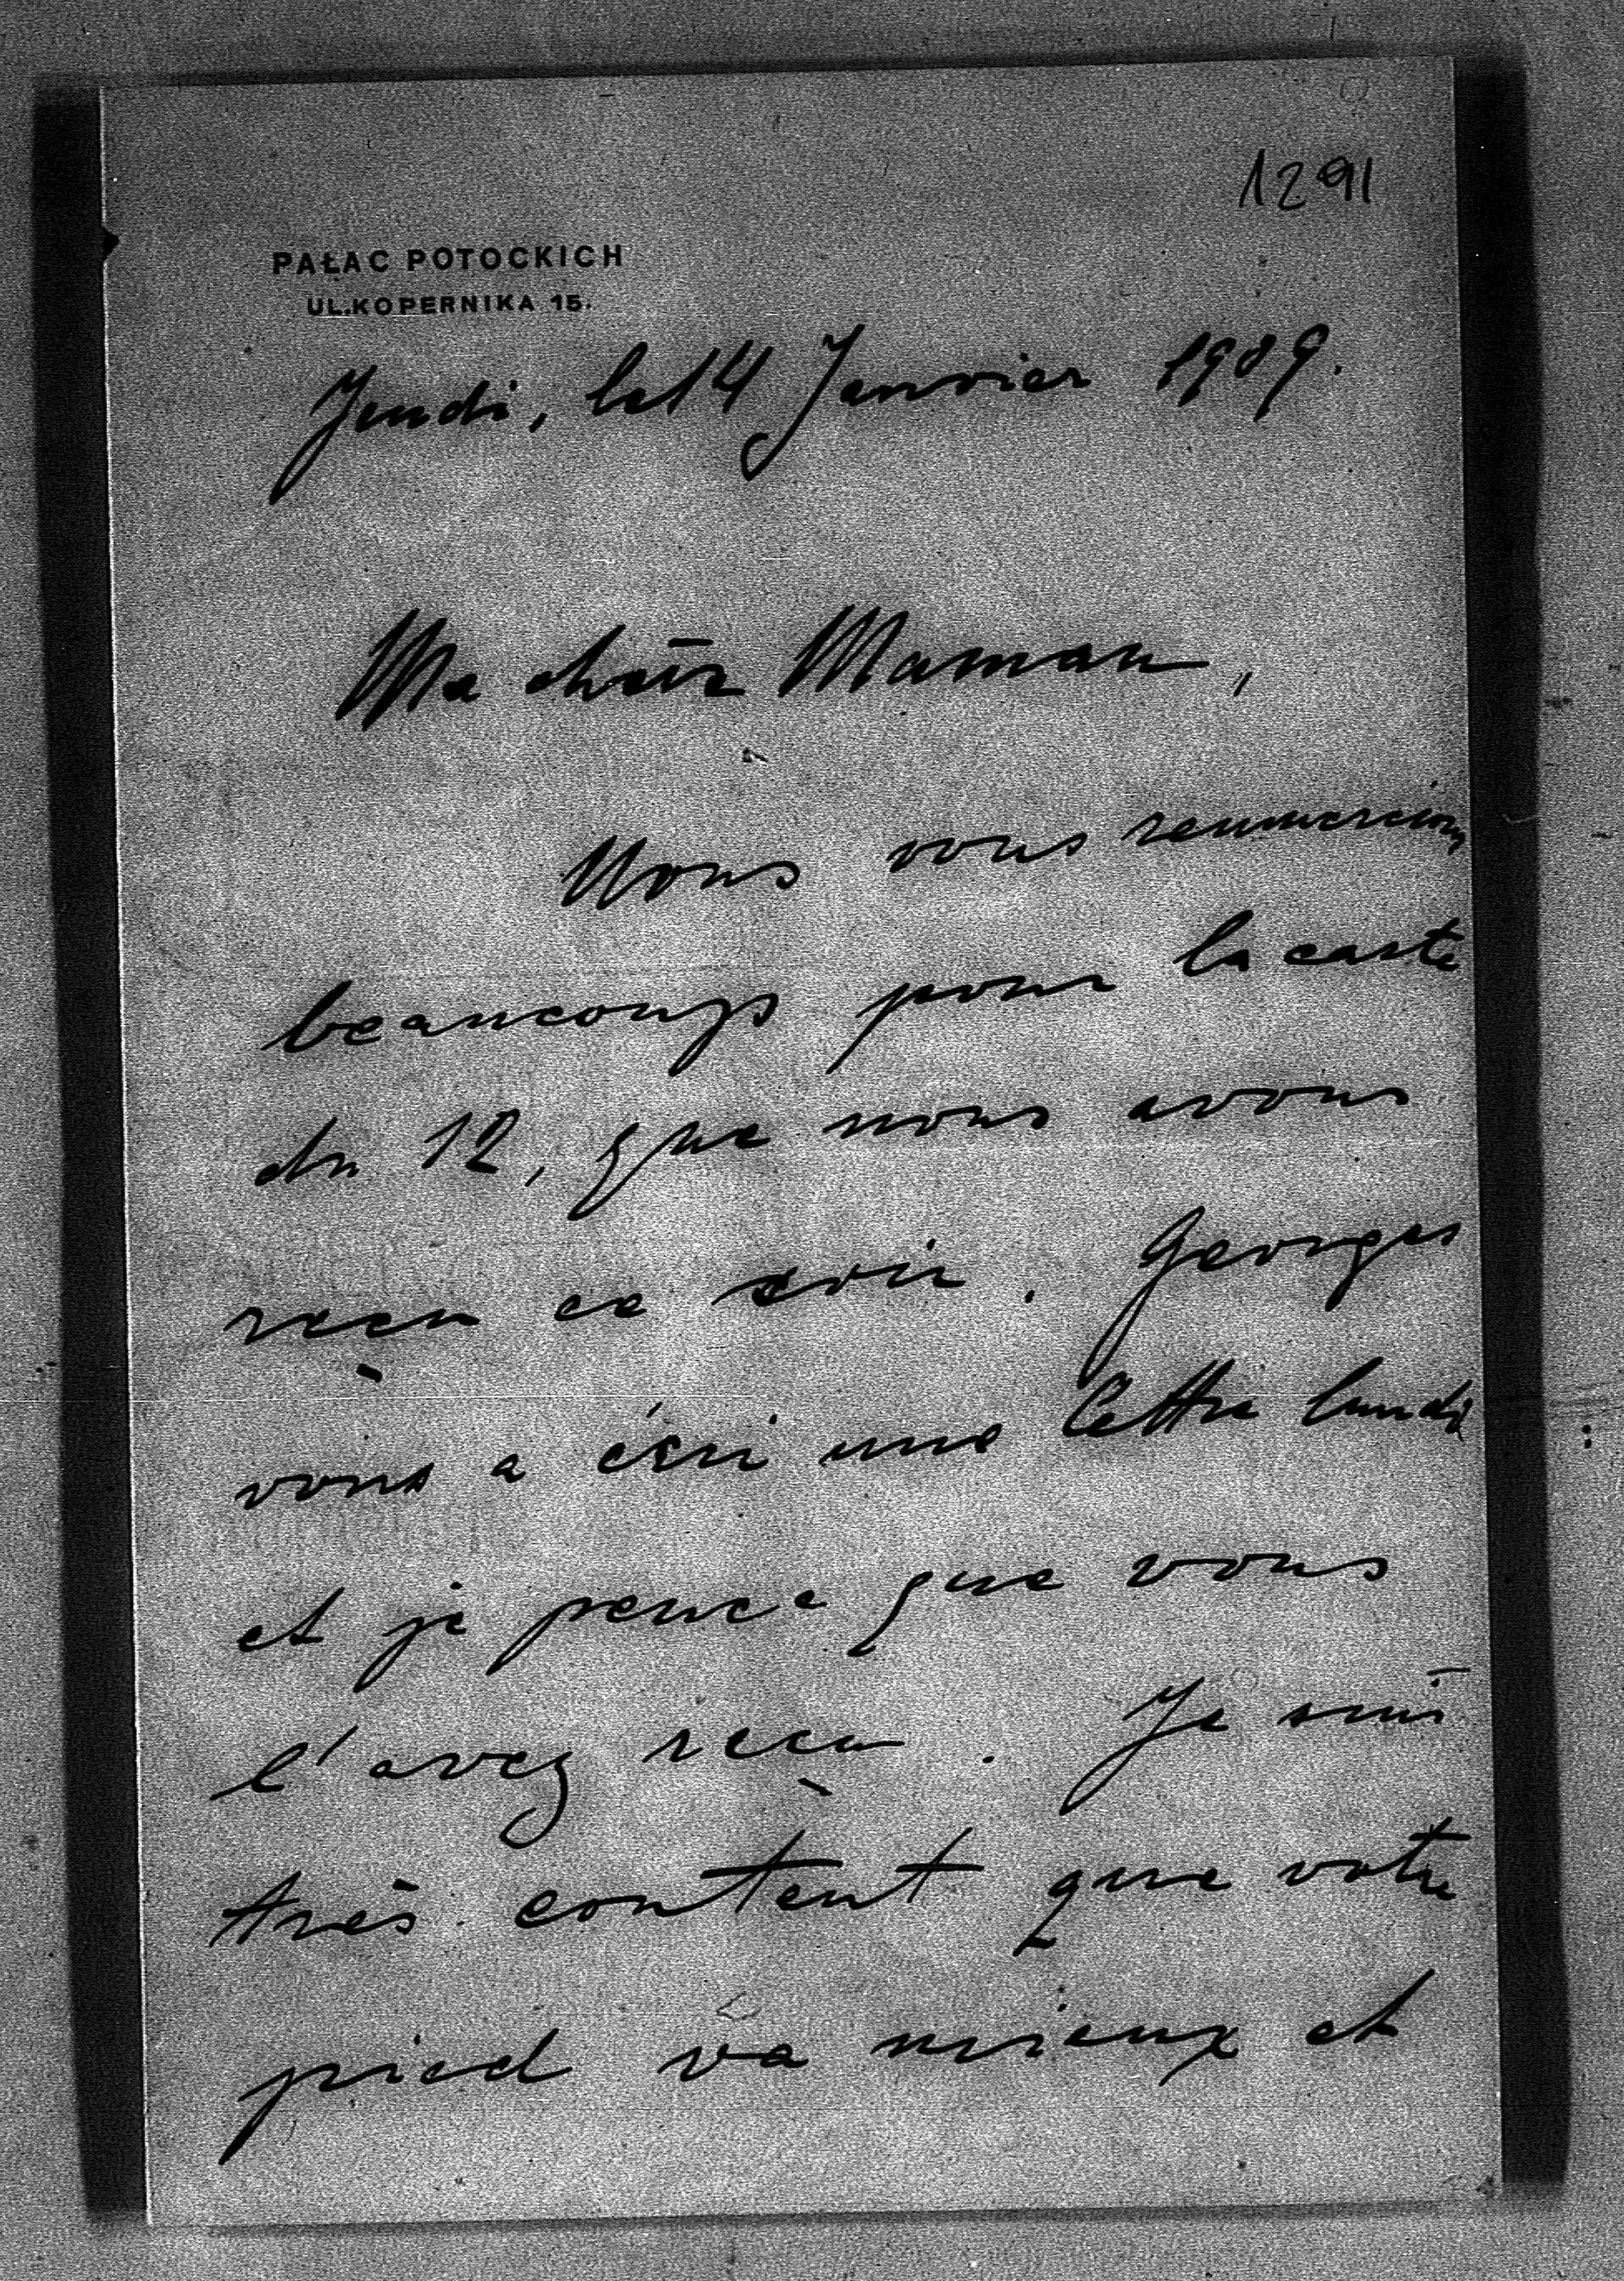 1291
PAŁAC POTOCKICH
UL.KOPERNIKA 15.
Jeudi, le 14 Janvier 1909.
Ma chère Maman,
Nous vous remmercions
beaucoup pour la carte
du 12, que nous avons
reçu ce soir. Georges
vous a écri une lettre lundi
et je pence que vous
l'avez reçu. Je suis
très content que votre
pied va mieux et